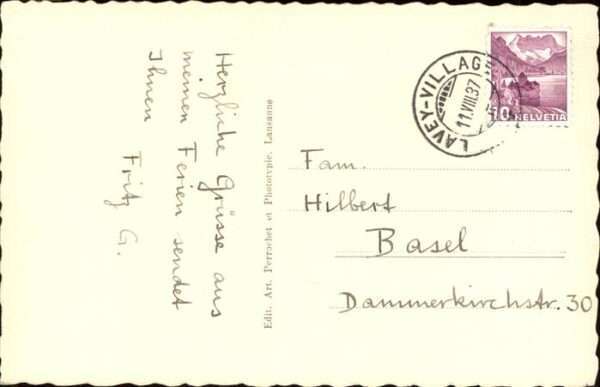 Herzliche Grüsse aus
meinen Ferien sendet
Ihnen
Fritz G.
Edit. Art. Perrochet et Phototypie. Lausanne
LAVEY-VILLAGE
11.VIII.37
10 HELVETIA
Fam.
Hilbert
Basel
Dammerkirchstr. 30